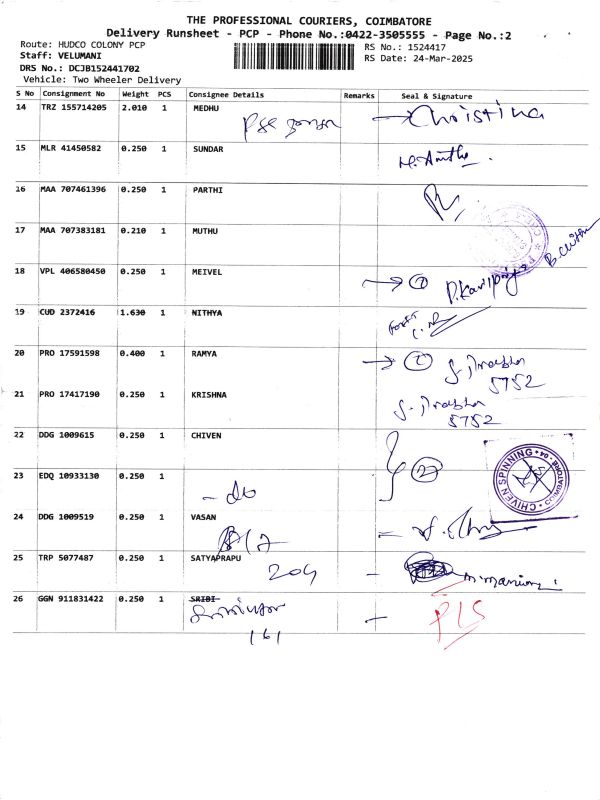 THE PROFESSIONAL COURIERS, COIMBATORE
Delivery Runsheet - PCP - Phone No.:0422-3505555 - Page No.:2
Route: HUDCO COLONY PCP
RS No.: 1524417
Staff: VELUMANI
RS Date: 24-Mar-2025
DRS No.: DCJB152441702
Vehicle: Two Wheeler Delivery
S No Consignment No Weight PCS Consignee Details Remarks Seal & Signature
14 TRZ 155714205 2.010 1 MEDHU
Christina
15 MLR 41450582 0.250 1 SUNDAR
16 MAA 707461396 0.250 1 PARTHI
17 MAA 707383181 0.210 1 MUTHU
18 VPL 406580450 0.250 1 MEIVEL
19 CUD 2372416 1.630 1 NITHYA
20 PRO 17591598 0.400 1 RAMYA
5752
21 PRO 17417190 0.250 1 KRISHNA
5752
22 DDG 1009615 0.250 1 CHIVEN
2
CHIVEN SPINNING COIMBATORE - 04
23 EDQ 10933130 0.250 1
- do
24 DDG 1009519 0.250 1 VASAN
25 TRP 5077487 0.250 1 SATYAPRAPU
204
26 GGN 911831422 0.250 1 SRIBI
161
PLS